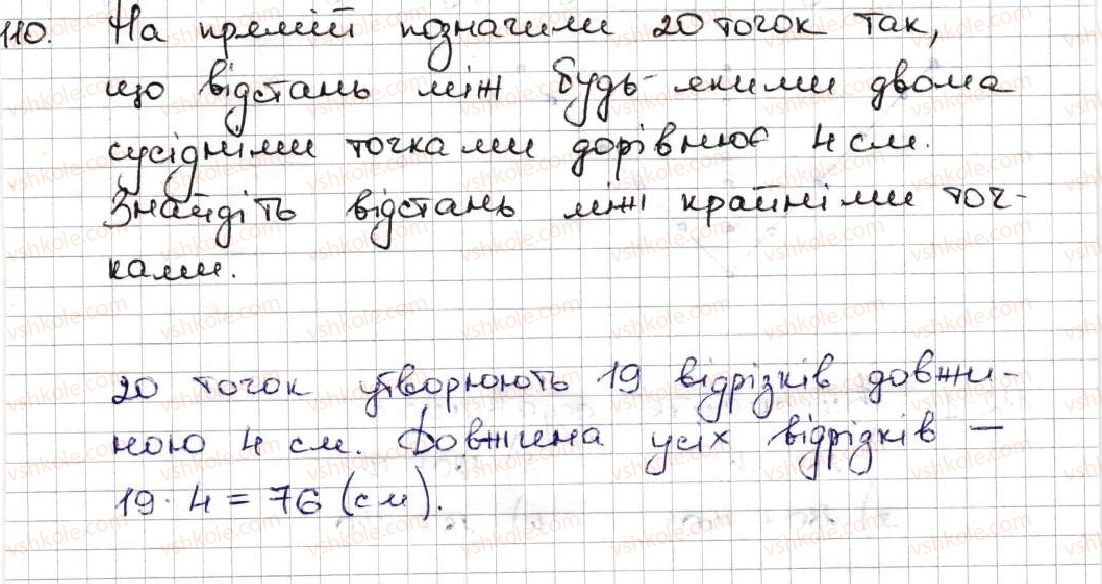 110. На прямій позначили 20 точок так,
що відстань між будь-якими двома
сусідніми точками дорівнює 4 см.
Знайдіть відстань між крайніми точ-
ками.
20 точок утворюють 19 відрізків довжи-
ною 4 см. Довжина усіх відрізків —
19 · 4 = 76 (см).